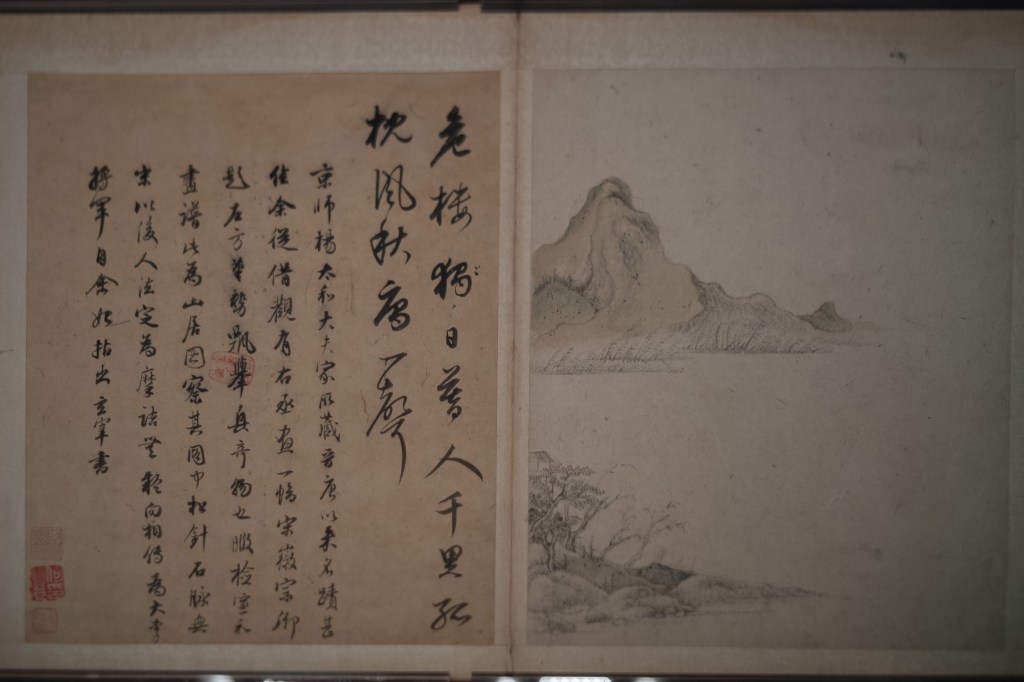 危楼獨日暮人千里孤
枕風秋雁一聲
京師楊太和大夫家所藏晉唐以来名蹟甚
佳余從借觀有右丞畫一幀宋徽宗御
題左方筆勢飄舉真奇物也暇檢宣和
畫譜此為山居図察其図中松針石脉無
宋以後人法定為摩詰無疑向相傳為大李
將軍自余始拈出玄宰書